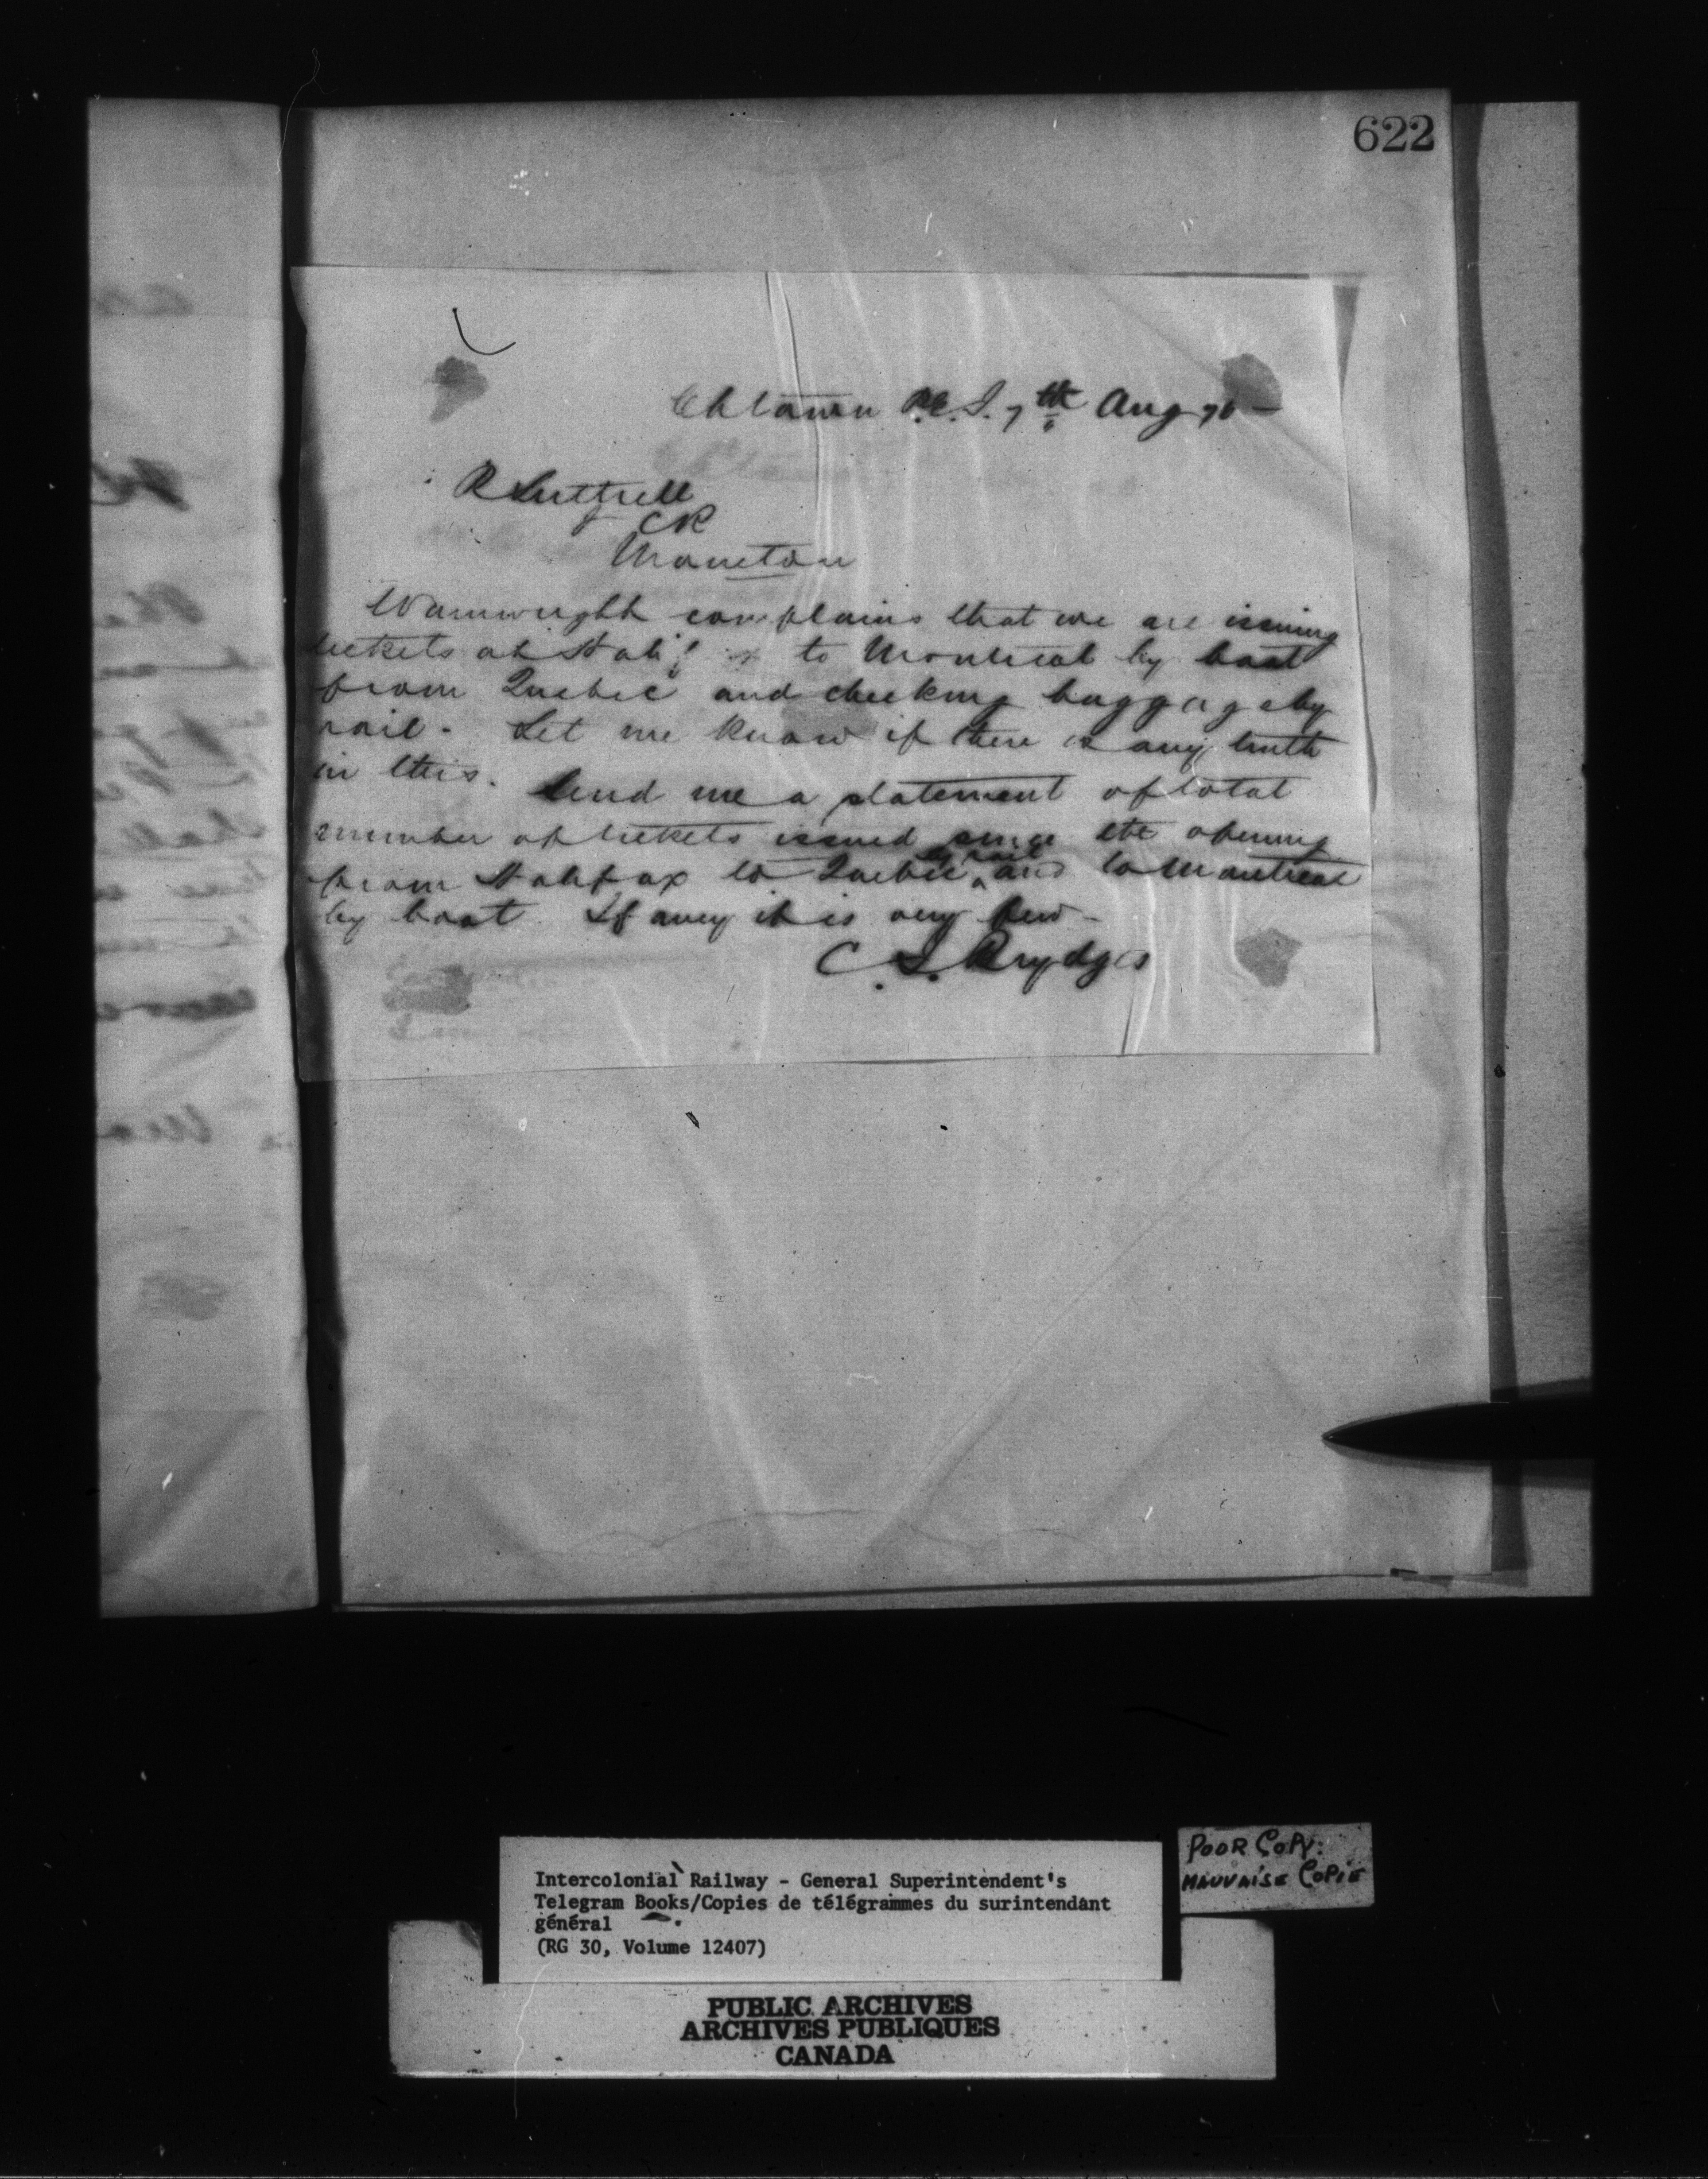 622
Chtown P.E.I. 7th Aug 76 -
R Luttrell
CR
Moncton
Wainwright complains that we are issuing
tickets at Halifx to Montreal by boat
from Quebec and checking baggage by
rail. Let me know if there is any truth
in this. Send me a statement of total
number of tickets issued since the opening
from Halifax to Quebec by rail and to Montreal
by boat. If any it is very few -
C. J. Brydges
Intercolonial Railway - General Superintendent's
Telegram Books/Copies de télégrammes du surintendant
général
(RG 30, Volume 12407)
POOR COPY.
MAUVAISE COPIE
PUBLIC ARCHIVES
ARCHIVES PUBLIQUES
CANADA